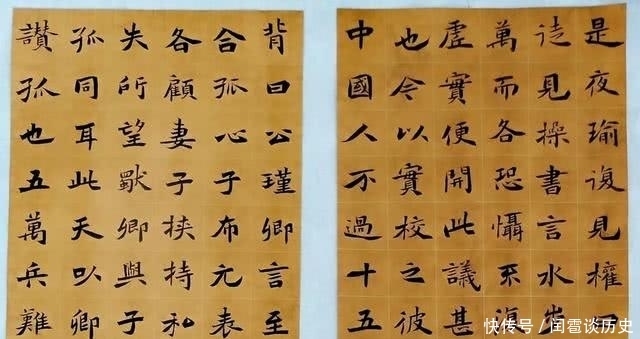 是夜瑜復見權曰
徒見操書言水步
萬而各恐懾不復
虛實便開此議甚
也今以實校之彼
中國人不過十五
背曰公瑾卿言至
合孤心子布元表
各顧妻子挾持私
失所望獨卿與子
孤同耳此天以卿
讚孤也五萬兵難
快传号/闰雹谈历史